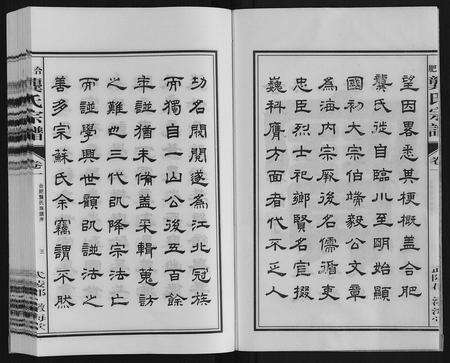 望因畧悉其梗概盖合肥
龔氏徙自臨川至明始顯
國初大宗伯端毅公文章
為海内宗厥後名儒循吏
忠臣烈士祀鄉賢名宦掇
巍科膺方面者代不乏人
肥龔氏宗譜
卷一
合龔氏宗譜
卷一
功名閥閱遂為江北冠族
而獨自一山公後五百餘
年譜猶未備盖采輯蒐訪
之難也三代既降宗法亡
而譜學興世願既譜法之
善多宗蘇氏余竊謂不然